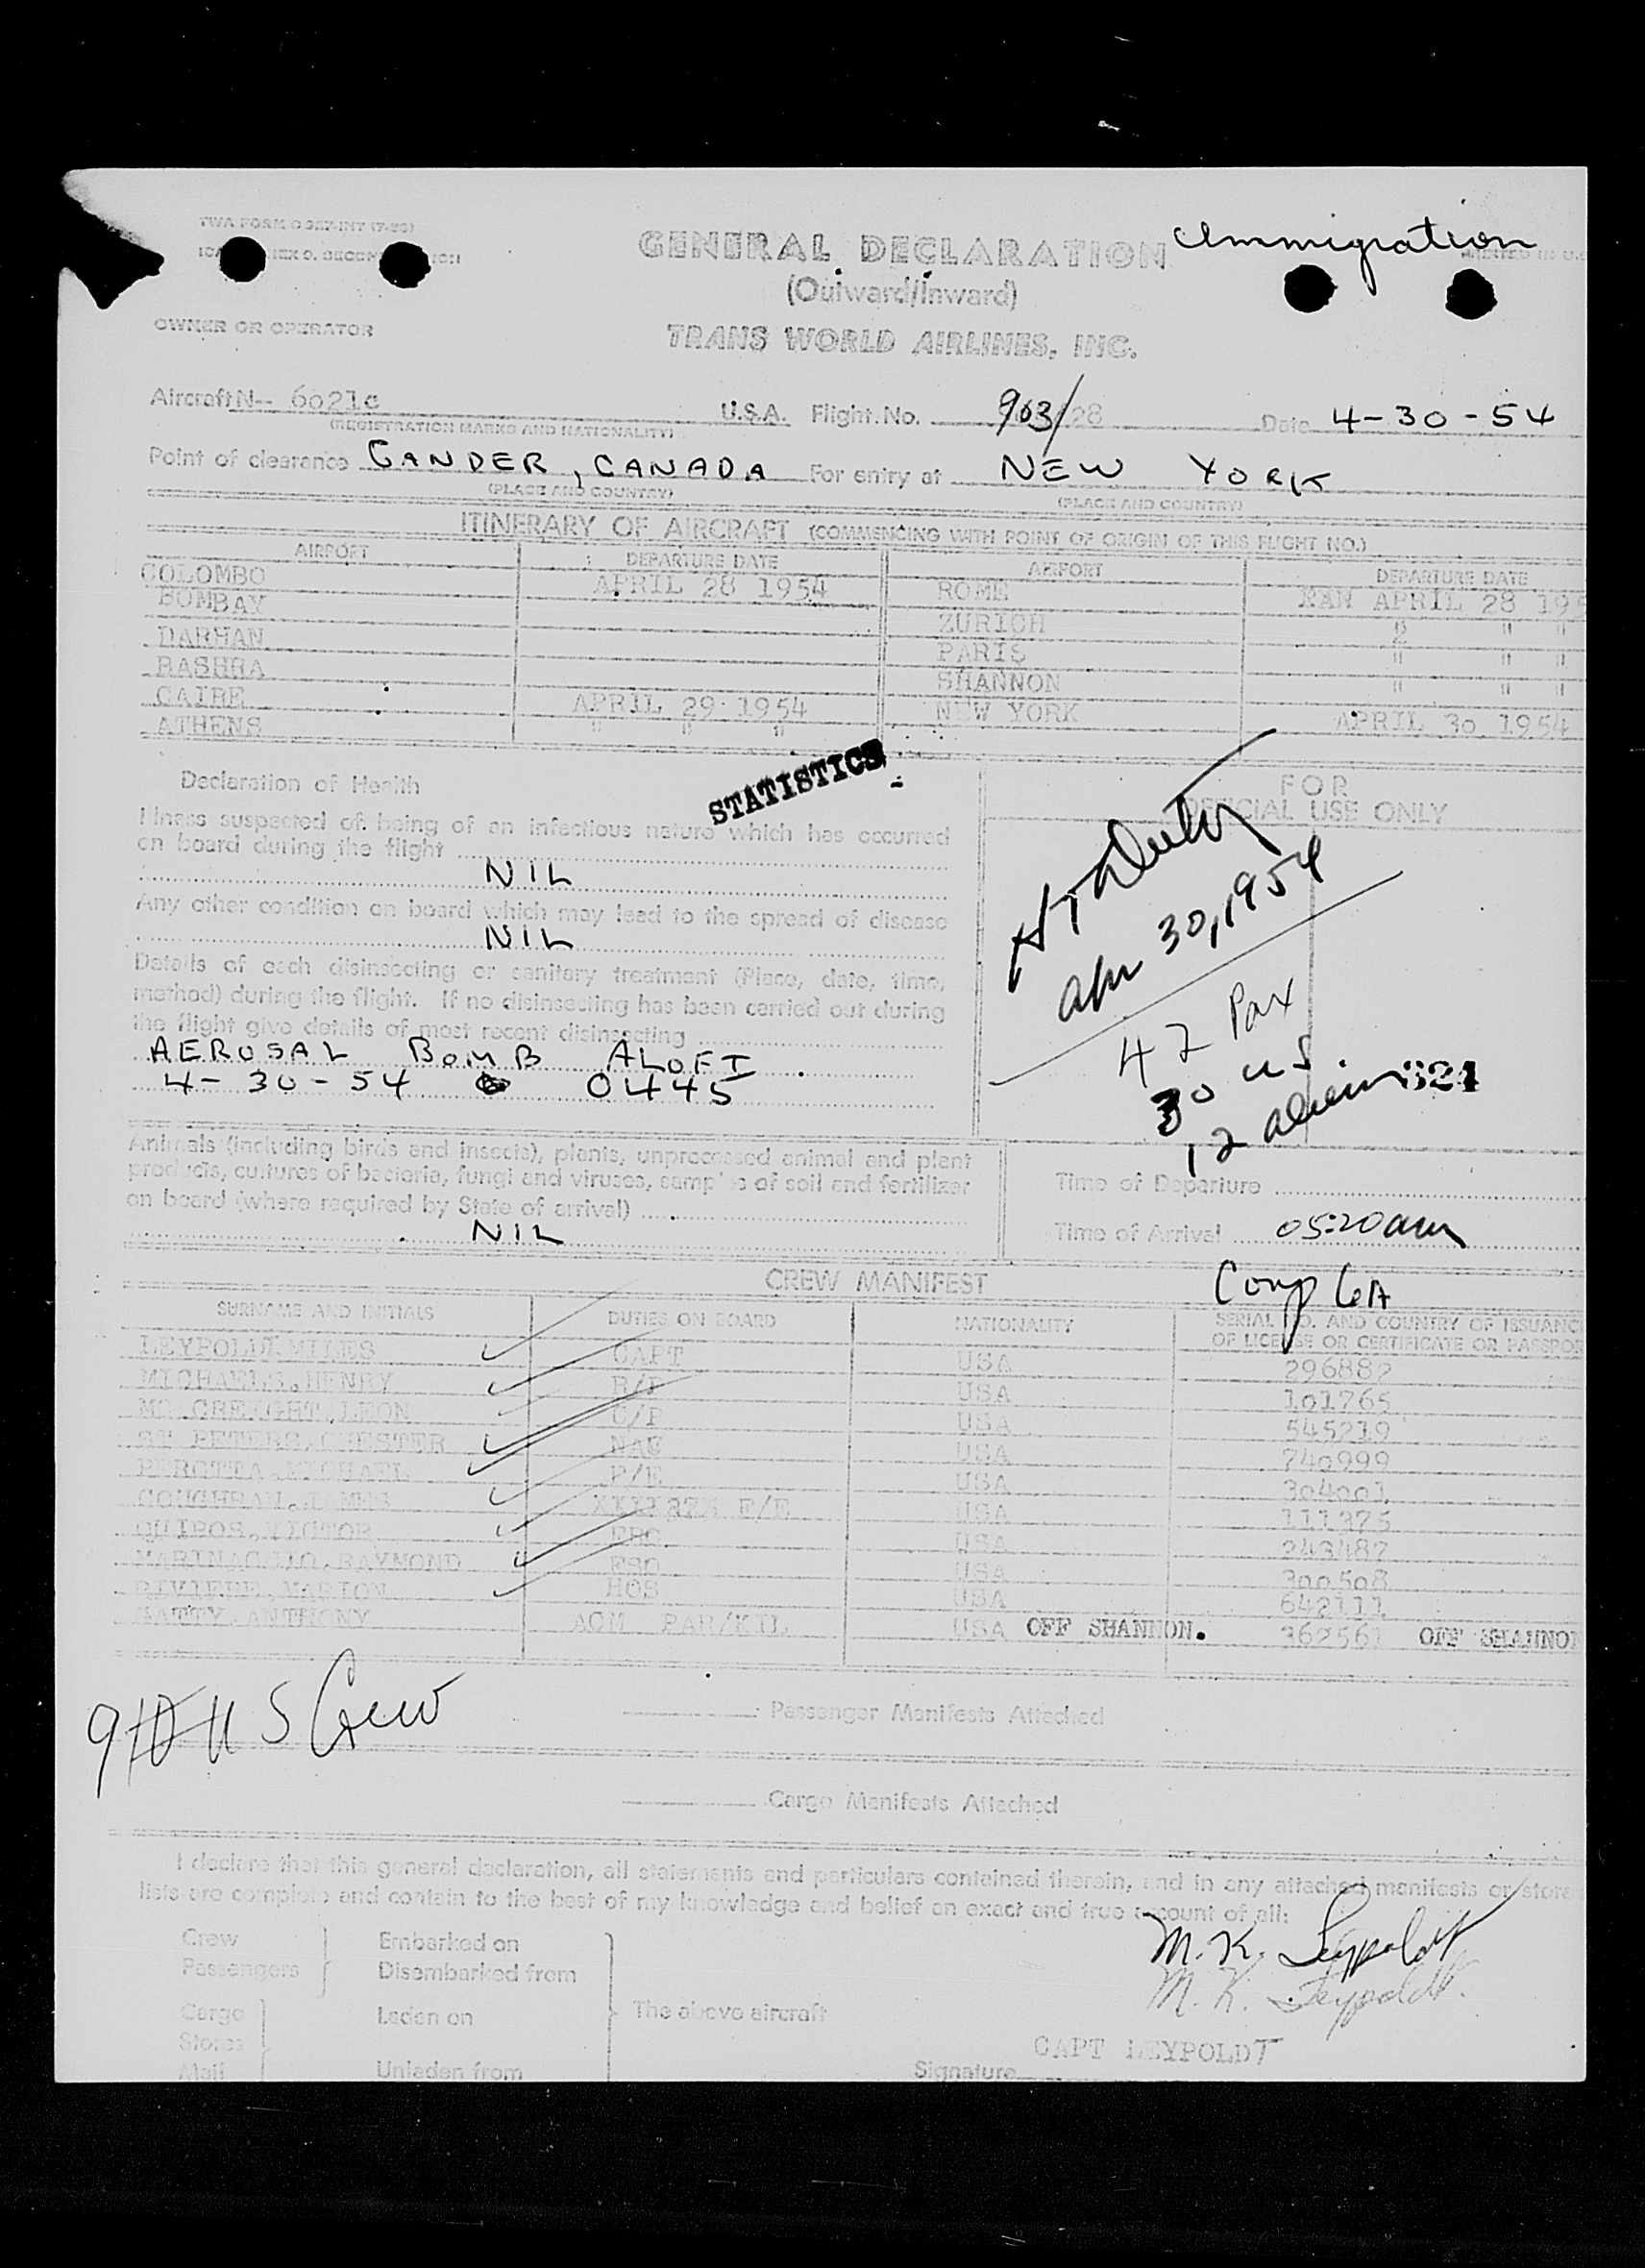 TWA FORM
Immigration
GENERAL DECLARATION
(Outward/Inward)
OWNER OR OPERATOR
TRANS WORLD AIRLINES, INC.
Aircraft N-- 6021c U.S.A. Flight No. 903/28 Date 4-30-54
(REGISTRATION MARKS AND NATIONALITY)
Point of clearance GANDER, CANADA For entry at NEW YORK
(PLACE AND COUNTRY) (PLACE AND COUNTRY)
ITINERARY OF AIRCRAFT (COMMENCING WITH POINT OF ORIGIN OF THIS FLIGHT NO.)
AIRPORT DEPARTURE DATE AIRPORT DEPARTURE DATE
COLOMBO APRIL 28 1954 ROME APRIL 28 195
BOMBAY ZURICH " " "
DARHAN PARIS " " "
BASHRA SHANNON " " "
CAIRE APRIL 29 1954 NEW YORK APRIL 30 1954
ATHENS " " "
STATISTICS
Declaration of Health
FOR
OFFICIAL USE ONLY
Illness suspected of being of an infectious nature which has occurred
on board during the flight
NIL
Any other condition on board which may lead to the spread of disease
NIL
Details of each disinsecting or sanitary treatment (Place, date, time,
method) during the flight. If no disinsecting has been carried out during
the flight give details of most recent disinsecting
AEROSAL BOMB ALOFT
4-30-54 0445
Apr 30, 1954
42 Pax
30 US
12 alien 824
Animals (including birds and insects), plants, unprocessed animal and plant
products, cultures of bacteria, fungi and viruses, samples of soil and fertilizer
on board (where required by State of arrival)
NIL
Time of Departure
Time of Arrival 05:20am
CREW MANIFEST
Comp
SURNAME AND INITIALS DUTIES ON BOARD NATIONALITY SERIAL NO. AND COUNTRY OF ISSUANC
OF LICENSE OR CERTIFICATE OR PASSPOR
LEYPOLDT, MILES CAPT USA 296882
MICHAELS, HENRY USA 101765
MC CREIGHT, LEON USA 545219
ST PETERS, CHESTER NAV USA 740999
PEROTTA, MICHAEL F/E USA 304001
COUGHRAN, JAMES F/E USA 111375
QUIROS, VICTOR USA 243487
MARINACCIO, RAYMOND USA 300508
RIVIERE, MARION HOS USA 642111
MATTY, ANTHONY ACM PAR/ USA OFF SHANNON. 362561 OFF SHANNON
9 10 US Crew
Passenger Manifests Attached
Cargo Manifests Attached
I declare that this general declaration, all statements and particulars contained therein, and in any attached manifests or store
lists are complete and contain to the best of my knowledge and belief an exact and true account of all:
M. K. Leypoldt
M. K. Leypoldt.
Crew Embarked on
Passengers Disembarked from
Cargo Laden on The above aircraft
Stores
CAPT LEYPOLDT
Mail Unladen from Signature